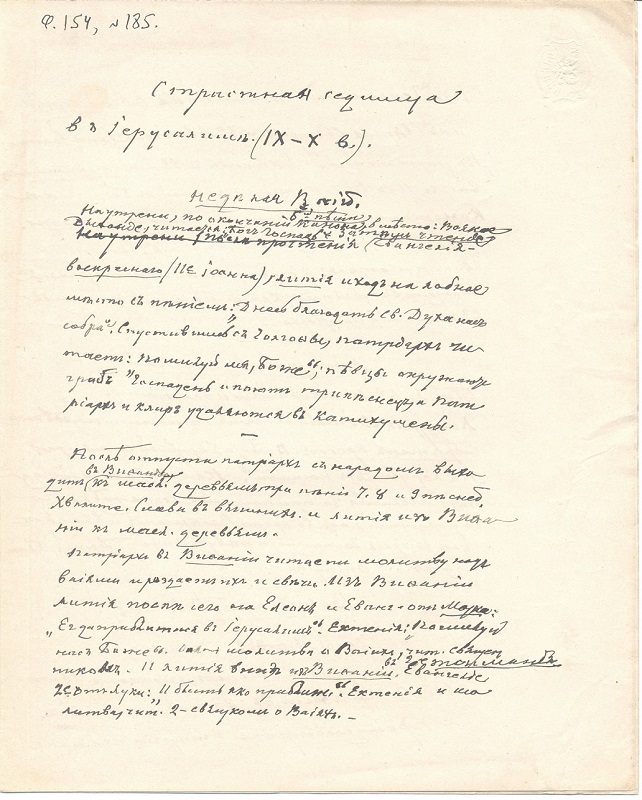 Ф. 154, № 185.
Страстная седмица
въ Іерусалимѣ. (IX – X в.).
Недѣля Ваій.
На утрени, по окончаніи канона, вмѣсто: Всякое
дыханіе, читается: Богъ Господь и
На утрени Евангелія
воскреснаго (пс. Іоанна), лития и ходъ на лобное
мѣсто съ пѣніемъ: Днесь благодать Св. Духа насъ
собра". Спустившись съ Голгоѳы, патріархъ чи-
таетъ: помилуй мя, Боже"; пѣвцы окружаютъ
гробъ Господень и поютъ трипѣснецъ а пат
ріархъ и клиръ удаляются въ катихумены.
—
Послѣ отпуста патріархъ съ народомъ выхо
въ Виѳанію
дитъ (къ масл. деревьямъ при пѣніи 7, 8 и 9 пѣсней,
Хвалите. Слава въ вышнихъ. и лития изъ Виѳа-
ніи къ масл. деревьямъ.
Патріархъ въ Виѳаніи читаетъ молитву надъ
ваіями и раздаетъ ихъ и свѣчи. Изъ Виѳаніи
лития послѣ сего на Елеонъ и Еванг. отъ Марка:
„Егда приближися въ Іерусалимъ". Ектенія: „Помилуй
насъ Боже". молитва о Ваіяхъ, чит. священ
никомъ. И лития внидъ изъ Виѳаніи въ Геѳсиманію Евангеліе
отъ Луки: И бысть яко приближ." Ектенія и мо
литва, чит. 2-священикомъ о Ваіяхъ. –